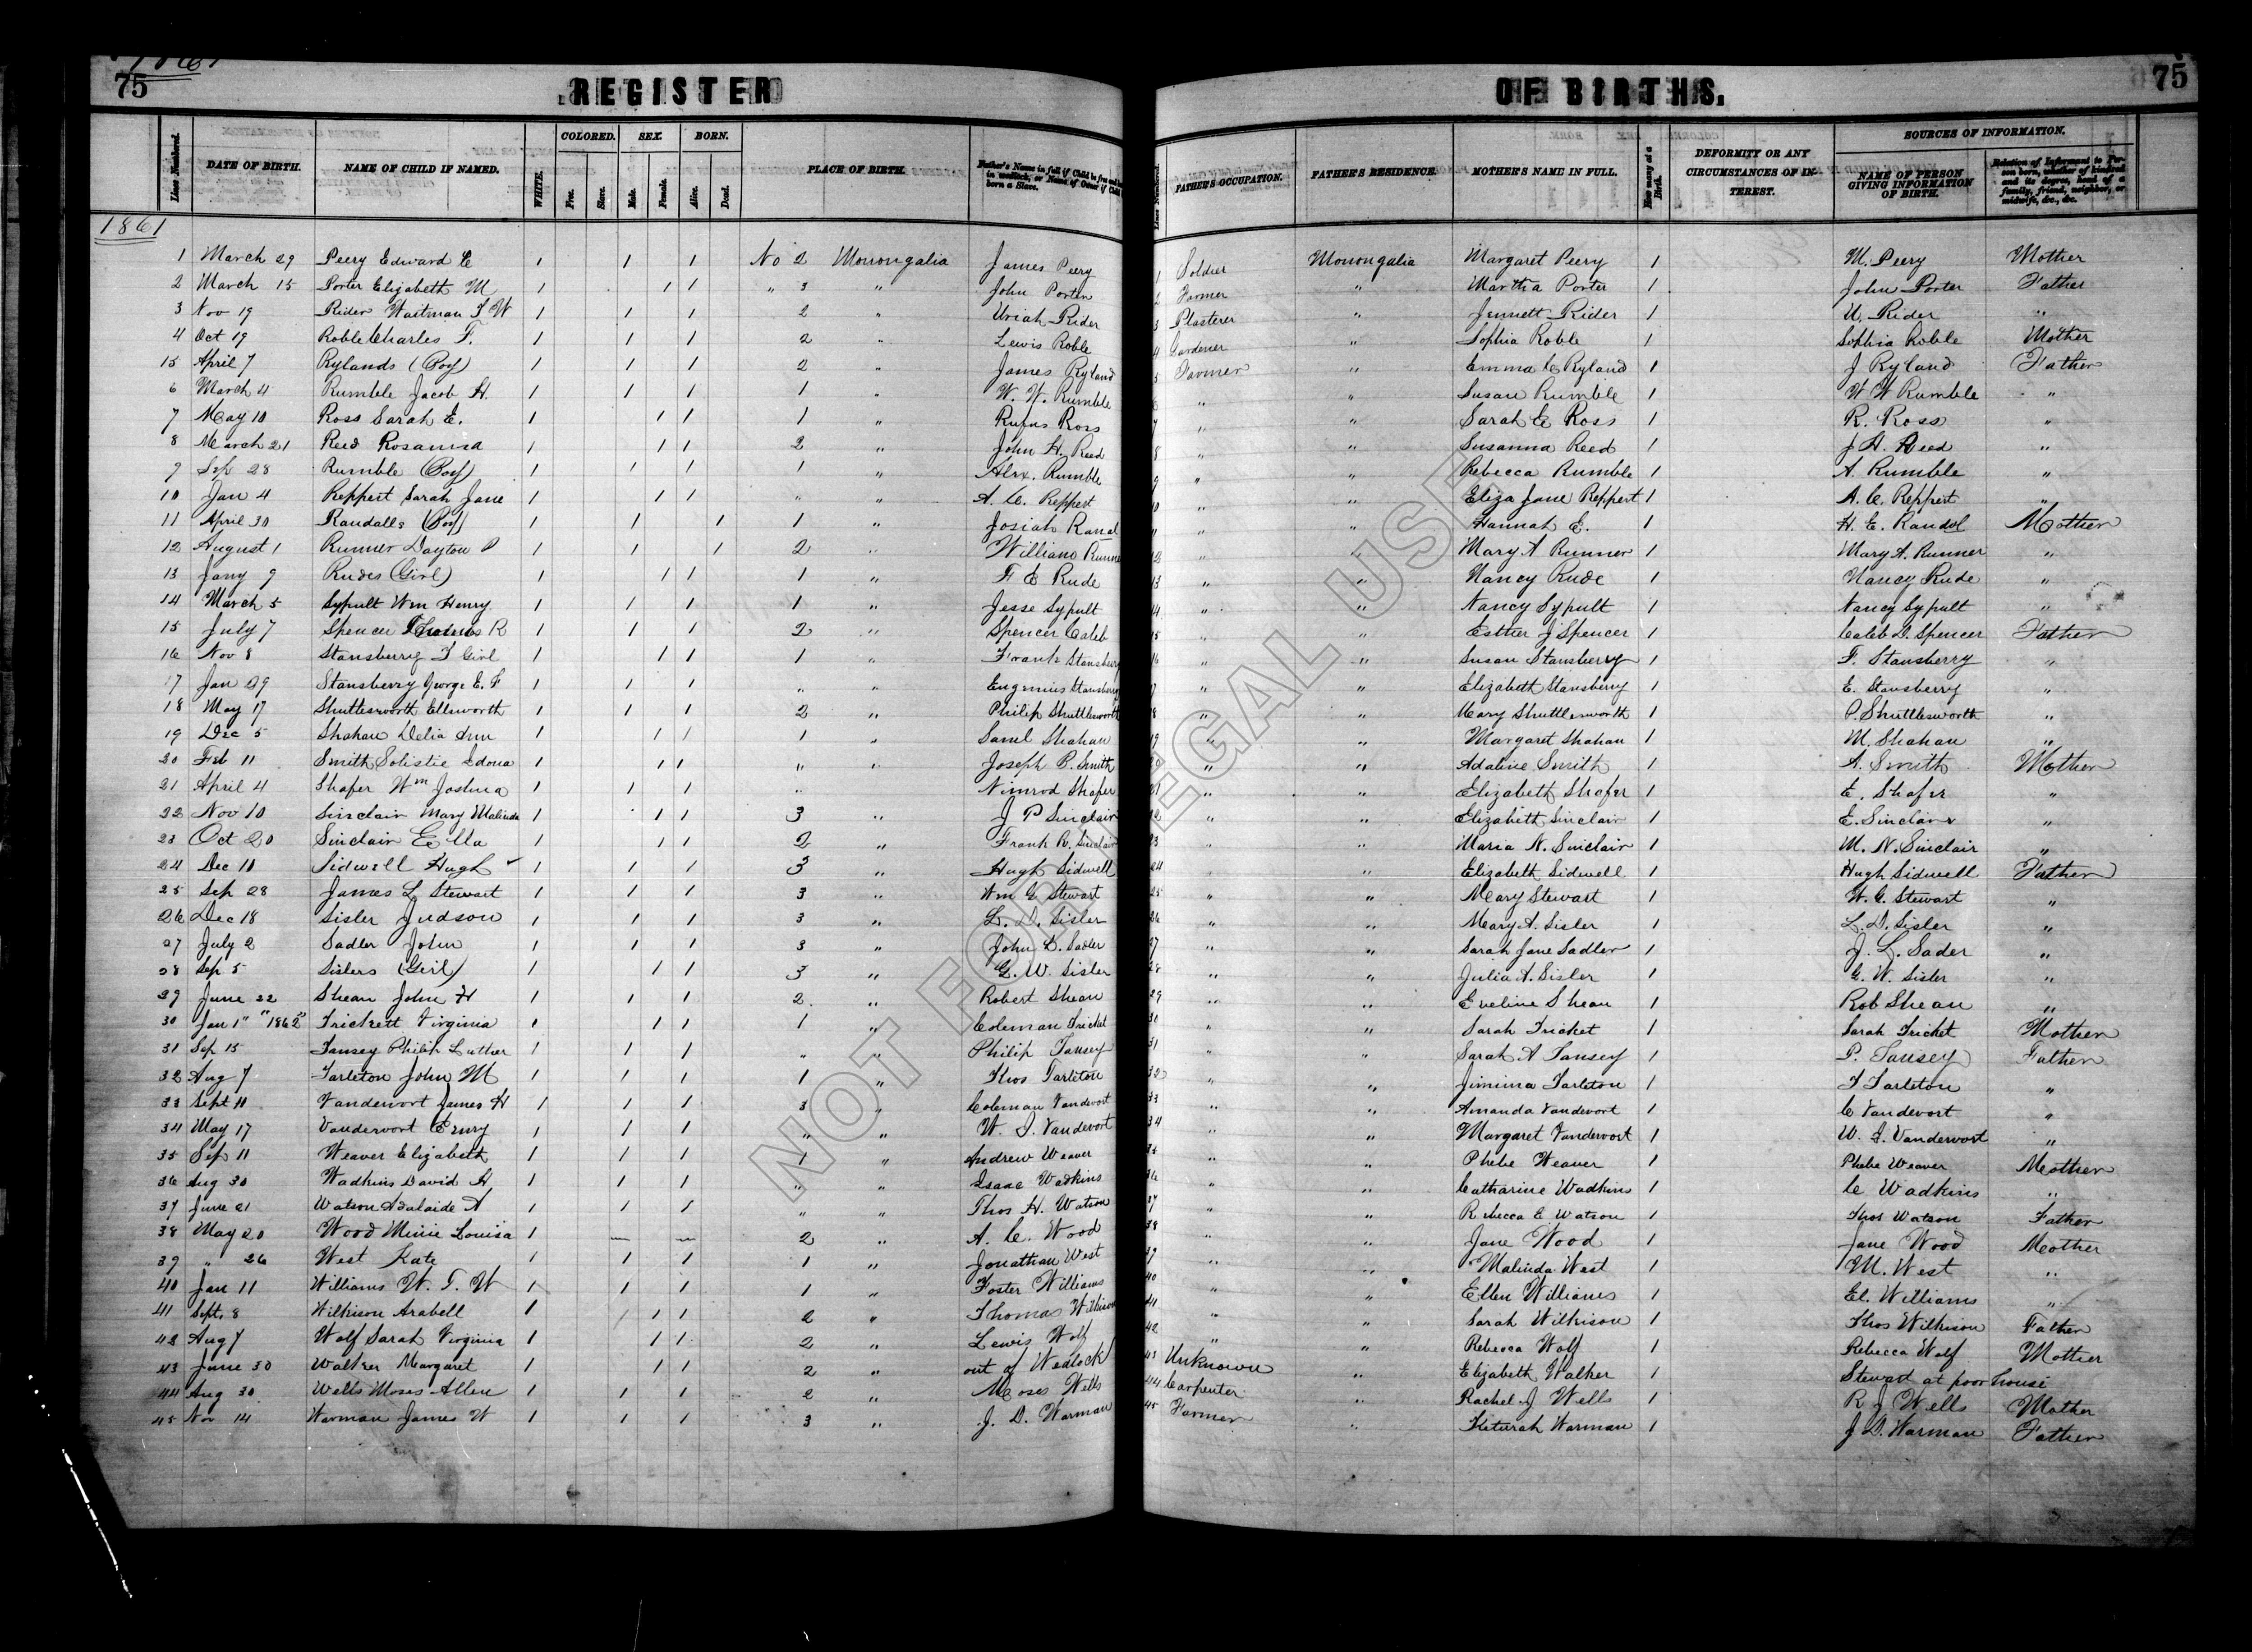 1861
75 REGISTER OF BIRTHS. 75
Lines Numbered. DATE OF BIRTH. NAME OF CHILD IF NAMED. WHITE. COLORED. Free. Slave. SEX. Male. Female. BORN. Alive. Dead. PLACE OF BIRTH. Father's Name in full if Child be free and born in wedlock, or Name of Owner if Child born a Slave. Lines Numbered. FATHER'S OCCUPATION. FATHER'S RESIDENCE. MOTHER'S NAME IN FULL. How many at a Birth. DEFORMITY OR ANY CIRCUMSTANCES OF INTEREST. SOURCES OF INFORMATION. NAME OF PERSON GIVING INFORMATION OF BIRTH. Relation of Informant to Person born, whether of kindred and its degree, head of a family, friend, neighbor, or midwife, &c., &c.
1861
1 March 29 Peery Edward C 1 1 1 No 2 Monongalia James Peery 1 Soldier Monongalia Margaret Peery 1 M. Peery Mother
2 March 15 Porter Elizabeth M 1 1 1 " 3 " John Porter 2 Farmer " Martha Porter 1 John Porter Father
3 Nov 19 Rider Waitman T W 1 1 1 2 " Uriah Rider 3 Plasterer " Jennett Rider 1 U. Rider "
4 Oct 19 Roble Charles F. 1 1 1 2 " Lewis Roble 4 Gardener " Sophia Roble 1 Sophia Roble Mother
15 April 7 Rylands (Boy) 1 1 1 2 " James Ryland 5 Farmer " Emma C Ryland 1 J Ryland Father
6 March 4 Rumble Jacob H. 1 1 1 1 " W. W. Rumble 6 " " Susan Rumble 1 W W Rumble "
7 May 10 Ross Sarah E. 1 1 1 1 " Rufus Ross 7 " " Sarah E Ross 1 R. Ross "
8 March 21 Reed Rosanna 1 1 1 2 " John H. Reed 8 " " Susanna Reed 1 J H. Reed "
9 Sep 28 Rumble (Boy) 1 1 1 1 " Alex. Rumble 9 " " Rebecca Rumble 1 A. Rumble "
10 Jan 4 Reppert Sarah Jane 1 1 1 " " A. C. Reppert 10 " " Eliza Jane Reppert 1 A. C. Reppert "
11 April 30 Randalls (Boy) 1 1 1 1 " Josiah Randal 11 " " Hannah E. 1 H. E. Randol Mother
12 August 1 Runner Dayton P 1 1 1 2 " William Runner 12 " " Mary A Runner 1 Mary A. Runner "
13 Jany 9 Rudes (Girl) 1 1 1 1 " F E Rude 13 " " Nancy Rude 1 Nancy Rude "
14 March 5 Sypult Wm Henry 1 1 1 1 " Jesse Sypult 14 " " Nancy Sypult 1 Nancy Sypult "
15 July 7 Spencer Thomas R 1 1 1 2 " Spencer Caleb 15 " " Esther J Spencer 1 Caleb D. Spencer Father
16 Nov 8 Stansberry F Girl 1 1 1 1 " Frank Stansberry 16 " " Susan Stansberry 1 F. Stansberry "
17 Jan 29 Stansberry George E. F 1 1 1 " " Eugenius Stansberry 17 " " Elizabeth Stansberry 1 E. Stansberry "
18 May 17 Shuttlesworth Ellsworth 1 1 1 2 " Philip Shuttlesworth 18 " " Mary Shuttlesworth 1 P. Shuttlesworth "
19 Dec 5 Shahan Delia Ann 1 1 1 1 " Saml Shahan 19 " " Margaret Shahan 1 M. Shahan "
20 Feb 11 Smith Solistie Idona 1 1 1 " " Joseph P. Smith 20 " " Adaline Smith 1 A. Smith Mother
21 April 4 Shafer Wm Joshua 1 1 1 " Nimrod Shafer 21 " " Elizabeth Shafer 1 E. Shafer "
22 Nov 10 Sinclair Mary Malinda 1 1 1 3 " J P Sinclair 22 " " Elizabeth Sinclair 1 E. Sinclair "
23 Oct 20 Sinclair Ella 1 1 1 2 " Frank R. Sinclair 23 " " Maria N. Sinclair 1 M. N. Sinclair "
24 Dec 10 Sidwell Hugh 1 1 1 3 " Hugh Sidwell 24 " " Elizabeth Sidwell 1 Hugh Sidwell Father
25 Sep 28 James L Stewart 1 1 1 3 " Wm G Stewart 25 " " Mary Stewart 1 W. G. Stewart "
26 Dec 18 Sisler Judson 1 1 1 3 " L. D. Sisler 26 " " Mary A. Sisler 1 L. D. Sisler "
27 July 2 Sadler John 1 1 1 3 " John L. Sadler 27 " " Sarah Jane Sadler 1 J. L. Sader "
28 Sep 5 Sislers (Girl) 1 1 1 3 " G. W. Sisler 28 " " Julia A. Sisler 1 G. W. Sisler "
29 June 22 Shean John H 1 1 1 2 " Robert Shean 29 " " Eveline Shean 1 Rob Shean "
30 Jan 1" "1862" Trickett Virginia 1 1 1 1 " Coleman Tricket 30 " " Sarah Tricket 1 Sarah Tricket Mother
31 Sep 15 Tansey Philip Luther 1 1 1 " " Philip Tansey 31 " " Sarah A Tansey 1 P. Tansey Father
32 Aug 7 Tarleton John M 1 1 1 1 " Thos Tarleton 32 " " Jimima Tarleton 1 T Tarleton "
33 Sept 11 Vandervort James H 1 1 1 3 " Coleman Vandevort 33 " " Amanda Vandevort 1 C Vandevort "
34 May 17 Vandervort Emry 1 1 1 " " W. J. Vandevort 34 " " Margaret Vandervort 1 W. J. Vandervort "
35 Sep 11 Weaver Elizabeth 1 1 1 1 " Andrew Weaver 35 " " Phebe Weaver 1 Phebe Weaver Mother
36 Aug 30 Wadkins David H 1 1 1 " " Isaac Wadkins 36 " " Catharine Wadkins 1 C Wadkins "
37 June 21 Watson Adalaide A 1 1 1 " " Thos H. Watson 37 " " Rebecca C Watson 1 Thos Watson Father
38 May 20 Wood Minie Louisa 1 — — 2 " A. C. Wood 38 " " Jane Wood 1 Jane Wood Mother
39 " 26 West Kate 1 1 1 1 " Jonathan West 39 " " Malinda West 1 M. West "
40 Jan 11 Williams W. T. W 1 1 1 1 " Foster Williams 40 " " Ellen Williams 1 El. Williams "
41 Sept. 8 Wilkison Arabell 1 1 1 2 " Thomas Wilkison 41 " " Sarah Wilkison 1 Thos Wilkison Father
42 Aug 7 Wolf Sarah Virginia 1 1 1 2 " Lewis Wolf 42 " " Rebecca Wolf 1 Rebecca Wolf Mother
43 June 30 Walker Margaret 1 1 1 2 " out of Wedlock 43 Unknown " Elizabeth Walker 1 Steward at poor house
44 Aug 30 Wells Moses Allen 1 1 1 2 " Moses Wells 44 Carpenter " Rachel J Wells 1 R J Wells Mother
45 Nov 14 Warman James W 1 1 1 3 " J. D. Warman 45 Farmer " Keturah Warman 1 J D. Warman Father
NOT FOR LEGAL USE